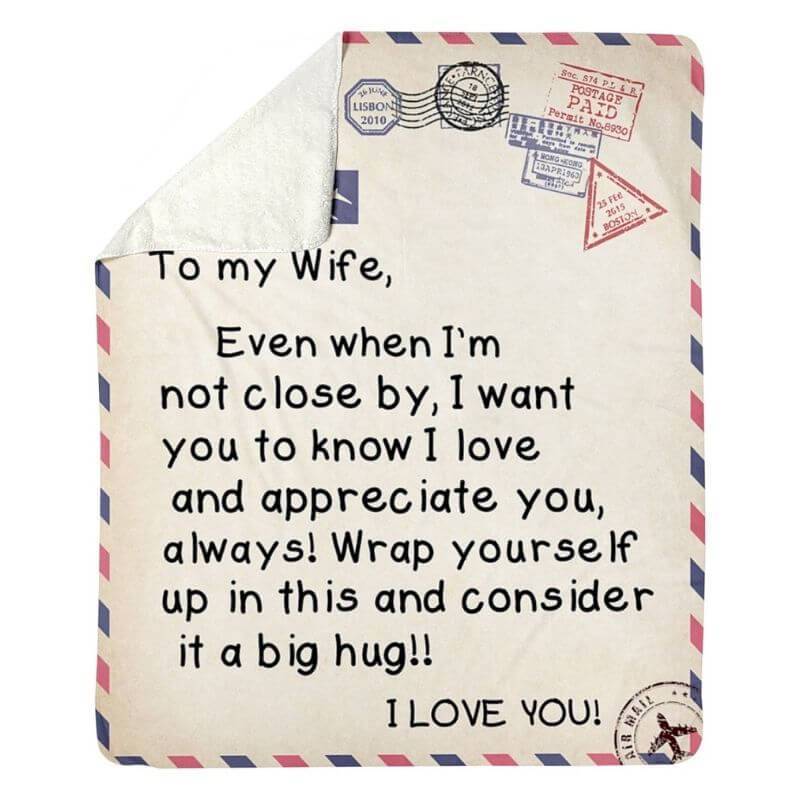 26 JUNE
LISBON
2010
TARNC
18
Soc. S74 P.L & R.
POSTAGE
PAID
Permit No.8930
HONG-KONG
13APR1963
25 FEB
2015
BOSTON
To my Wife,
Even when I'm
not close by, I want
you to know I love
and appreciate you,
always! Wrap yourself
up in this and consider
it a big hug!!
I LOVE YOU!
AIR MAIL